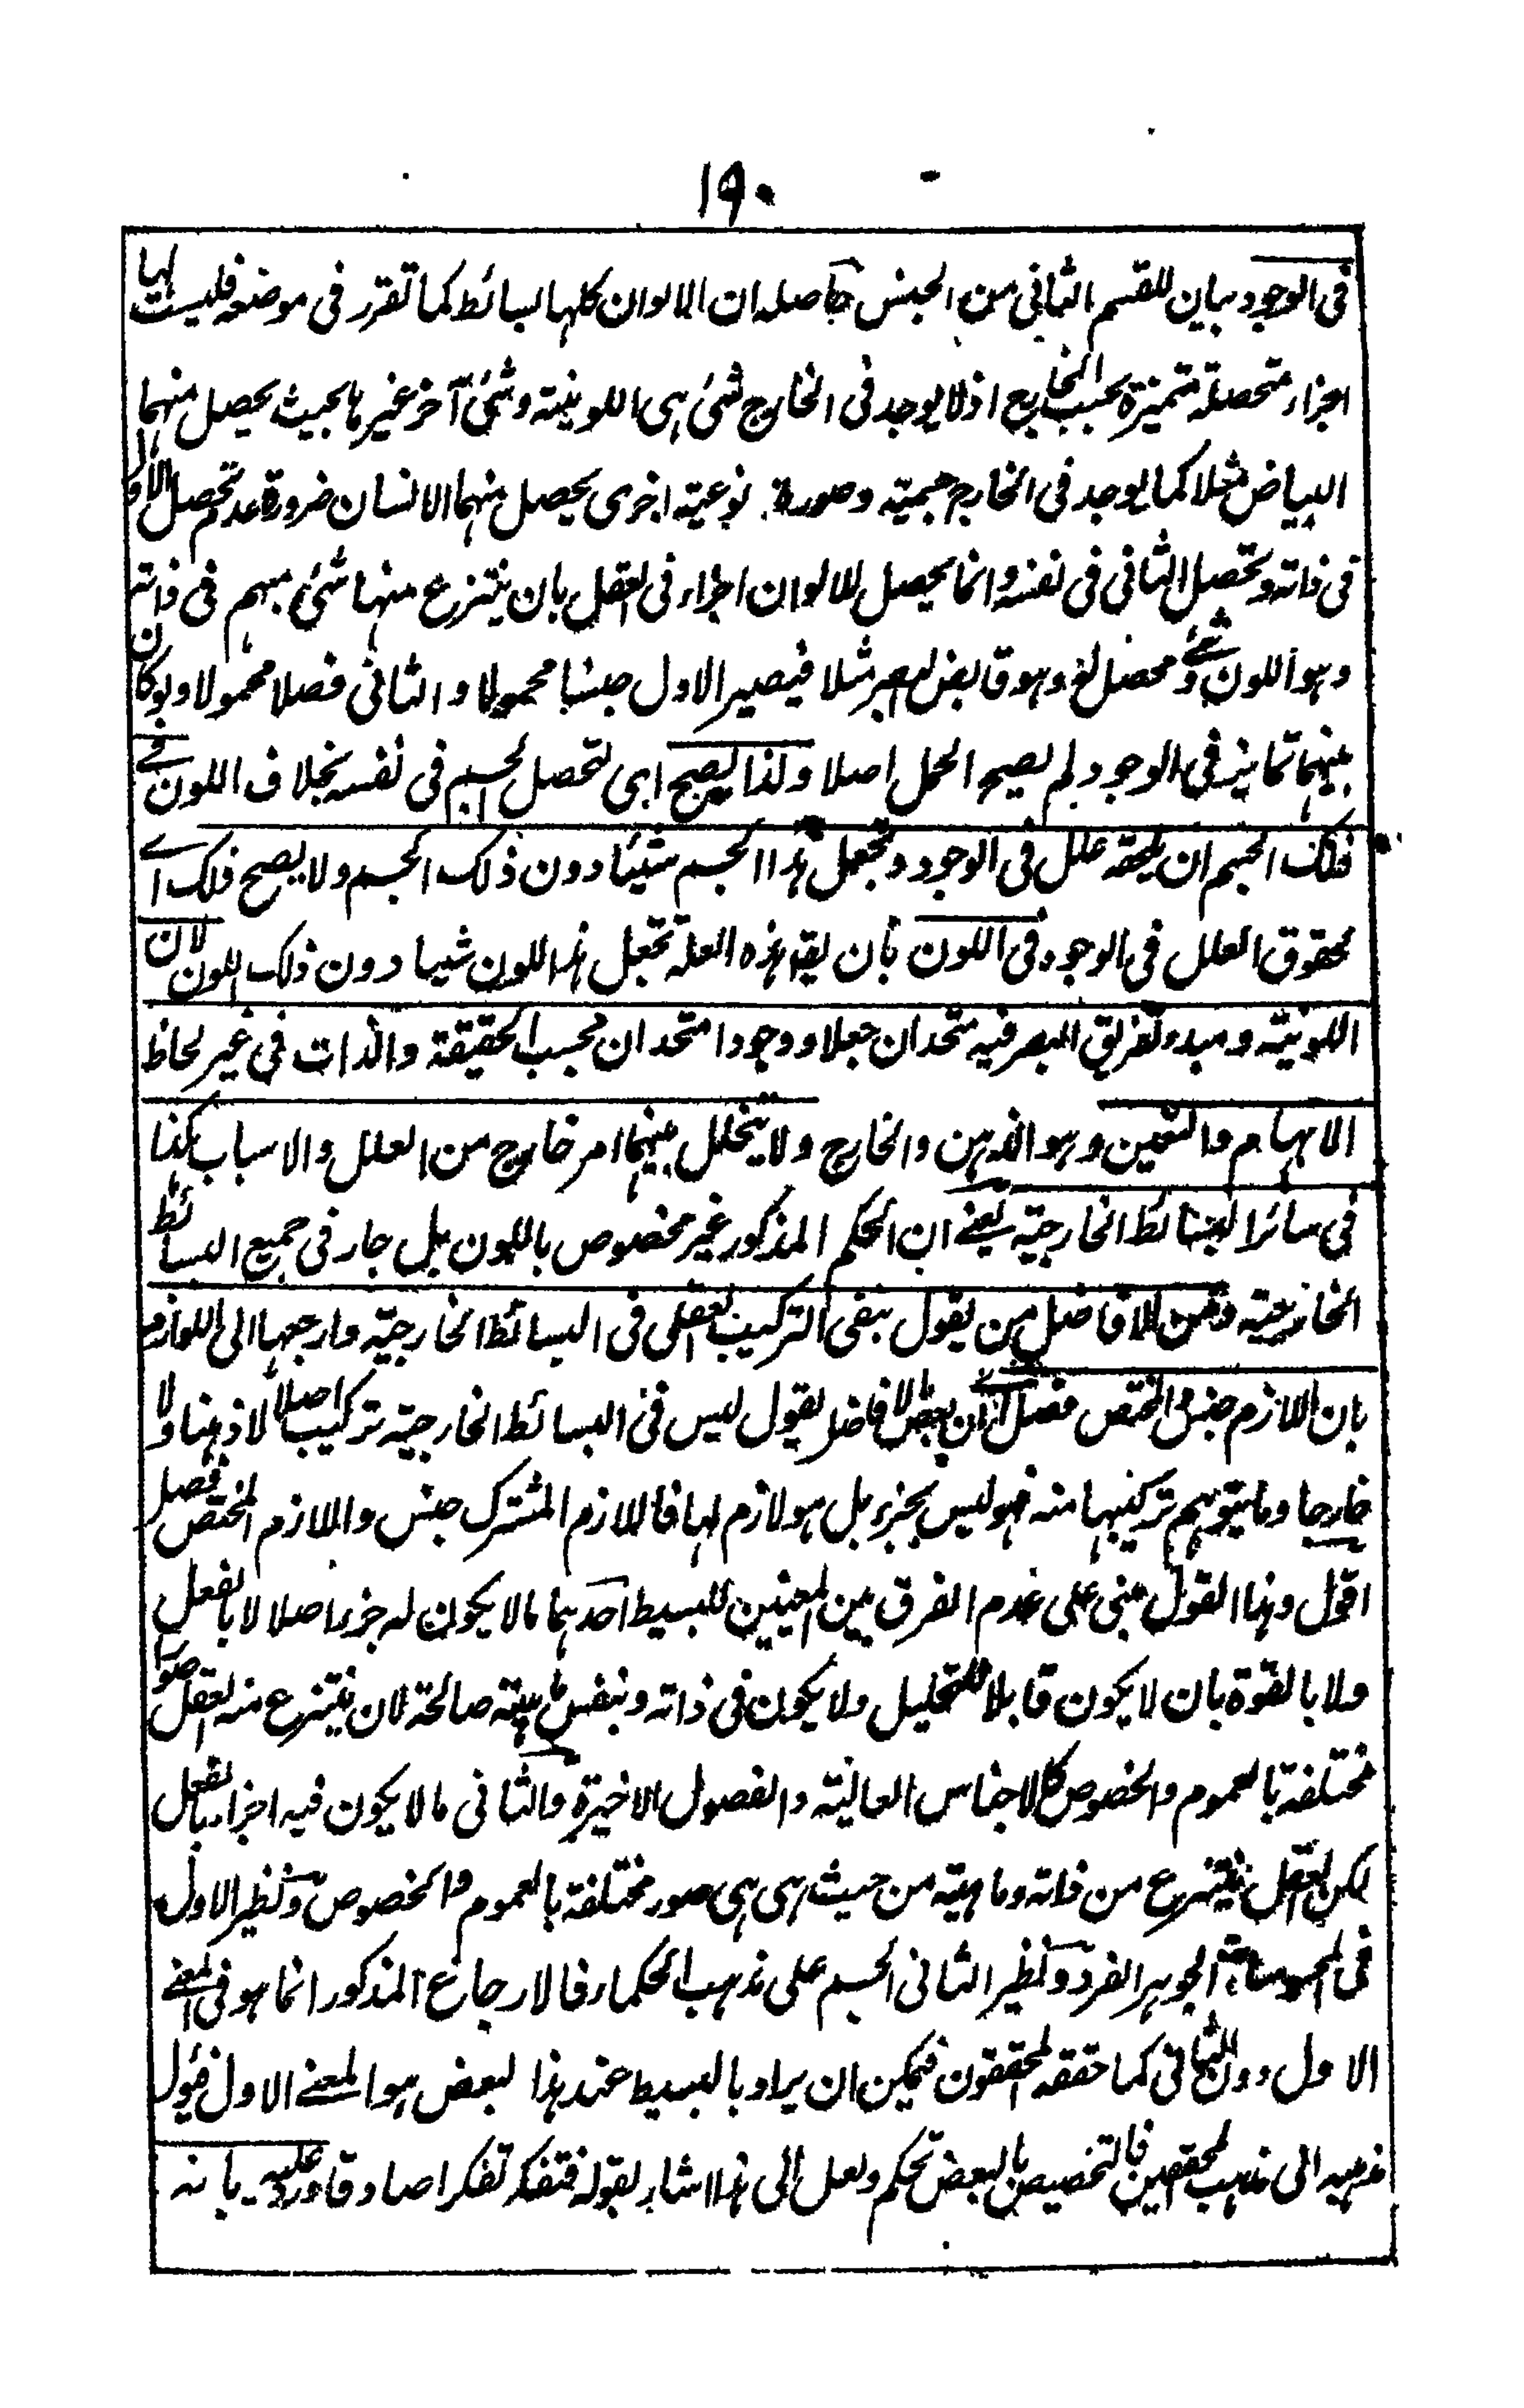 ١٩٠
فى الوجود بيان للقسم الثانى من الجنس حاصله ان الالوان كلها بسائط كما تقرر فى موضعه فليست لها
اجزاء متحصلة متميزة بحسب الخارج اذ لا يوجد فى الخارج شئ هى اللونية وشئ آخر غيرها بحيث يحصل منهما
البياض مثلا كما يوجد فى الخارج جسمية وصورة نوعية اخرى يحصل منهما الانسان ضرورة عدم تحصل الاول
فى ذاته وتحصل الثانى فى نفسه وانما يحصل للالوان اجزاء فى العقل بان ينتزع منها شئ مبهم فى ذاته
وهو اللون وشئ محصل له وهو قابض للبصر مثلا فيصير الاول جنسا محمولا والثانى فصلا محمولا ولو كان
بينهما تمايز فى الوجود لم يصح الحمل اصلا ولذا يصح اى لتحصل الجسم فى نفسه بخلاف اللون فى
ذلك الجسم ان يلحقه علل فى الوجود وتجعل هذا الجسم شيئا دون ذلك الجسم ولا يصح ذلك اى
لحوق العلل فى الوجود فى اللون بان يقم هذه العلة تجعل هذا اللون شيئا دون ذلك اللون لان
اللونية ومبدء تفريق البصر فيه متحدان جعلا ووجودا متحدان بحسب الحقيقة والذات فى غير لحاظ
الابهام والتعين وهو الذهن والخارج ولا يتخلل بينهما امر خارج من العلل والاسباب هكذا
فى سائر البسائط الخارجية يعنے ان الحكم المذكور غير مخصوص باللون بل جار فى جميع البسائط
الخارجية ومن الافاضل من يقول بنفى التركيب العقلى فى البسائط الخارجية وارجعها الى اللوازم
بان اللازم جنس والمختص فصل اى ان بعض الافاضل يقول ليس فى البسائط الخارجية تركيب اصلا لا ذهنا ولا
خارجا وما يتوهم تركيبها منه فهو ليس بجزء بل هو لازم لها فاللازم المشترك جنس واللازم المختص فصل
اقول وهذا القول مبنى على عدم الفرق بين المعنيين للبسيط احدهما ما لا يكون له جزء اصلا لا بالفعل
ولا بالقوة بان لا يكون قابلا للتحليل ولا يكون فى ذاته وبنفس ماهيته صالحة لان ينتزع منه العقل صورا
مختلفة بالعموم والخصوص كالاجناس العالية والفصول الاخيرة والثانى ما لا يكون فيه اجزاء بالفعل
لكن العقل ينتزع من ذاته وماهيته من حيث هى هى صور مختلفة بالعموم والخصوص ونظير الاول
فى المحسوسات الجوهر الفرد ونظير الثانى الجسم على مذهب الحكماء فالارجاع المذكور انما هو فى المعنے
الاول دون الثانى كما حققه المحققون فيمكن ان يراد بالبسيط عند هذا البعض هو المعنے الاول فيؤل
مذهبه الى مذهب المحققين فالتخصيص بالبعض تحكم ولعل الى هذا اشار بقوله فتفكر تفكرا صادقا ورد عليه بانه